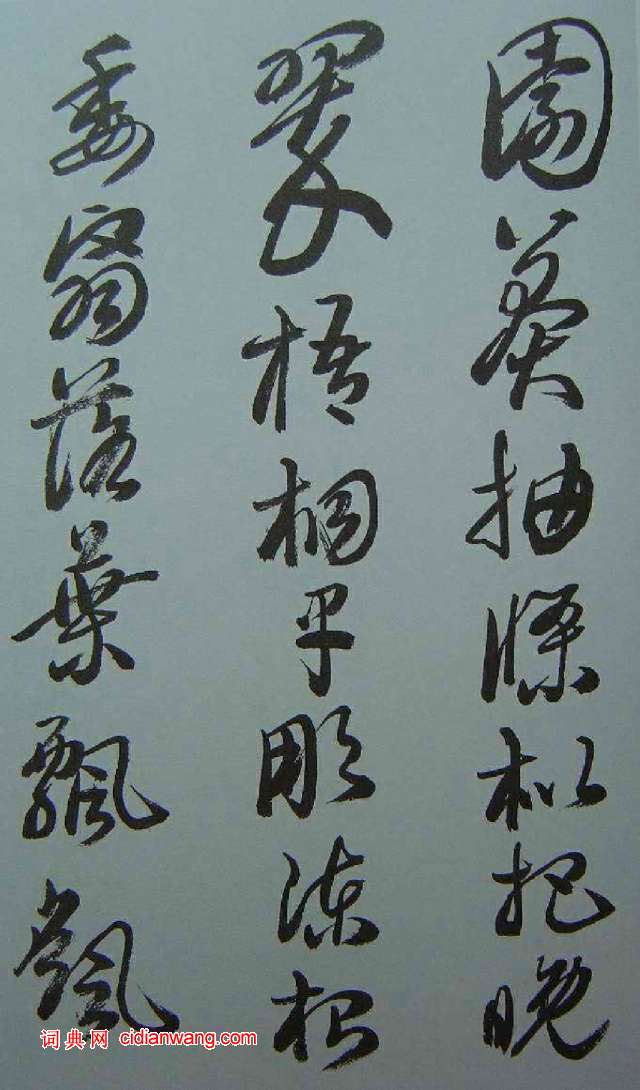 園莽抽條枇杷晚
翠梧桐早彫陳根
委翳落葉飄颻
词典网 cidianwang.com